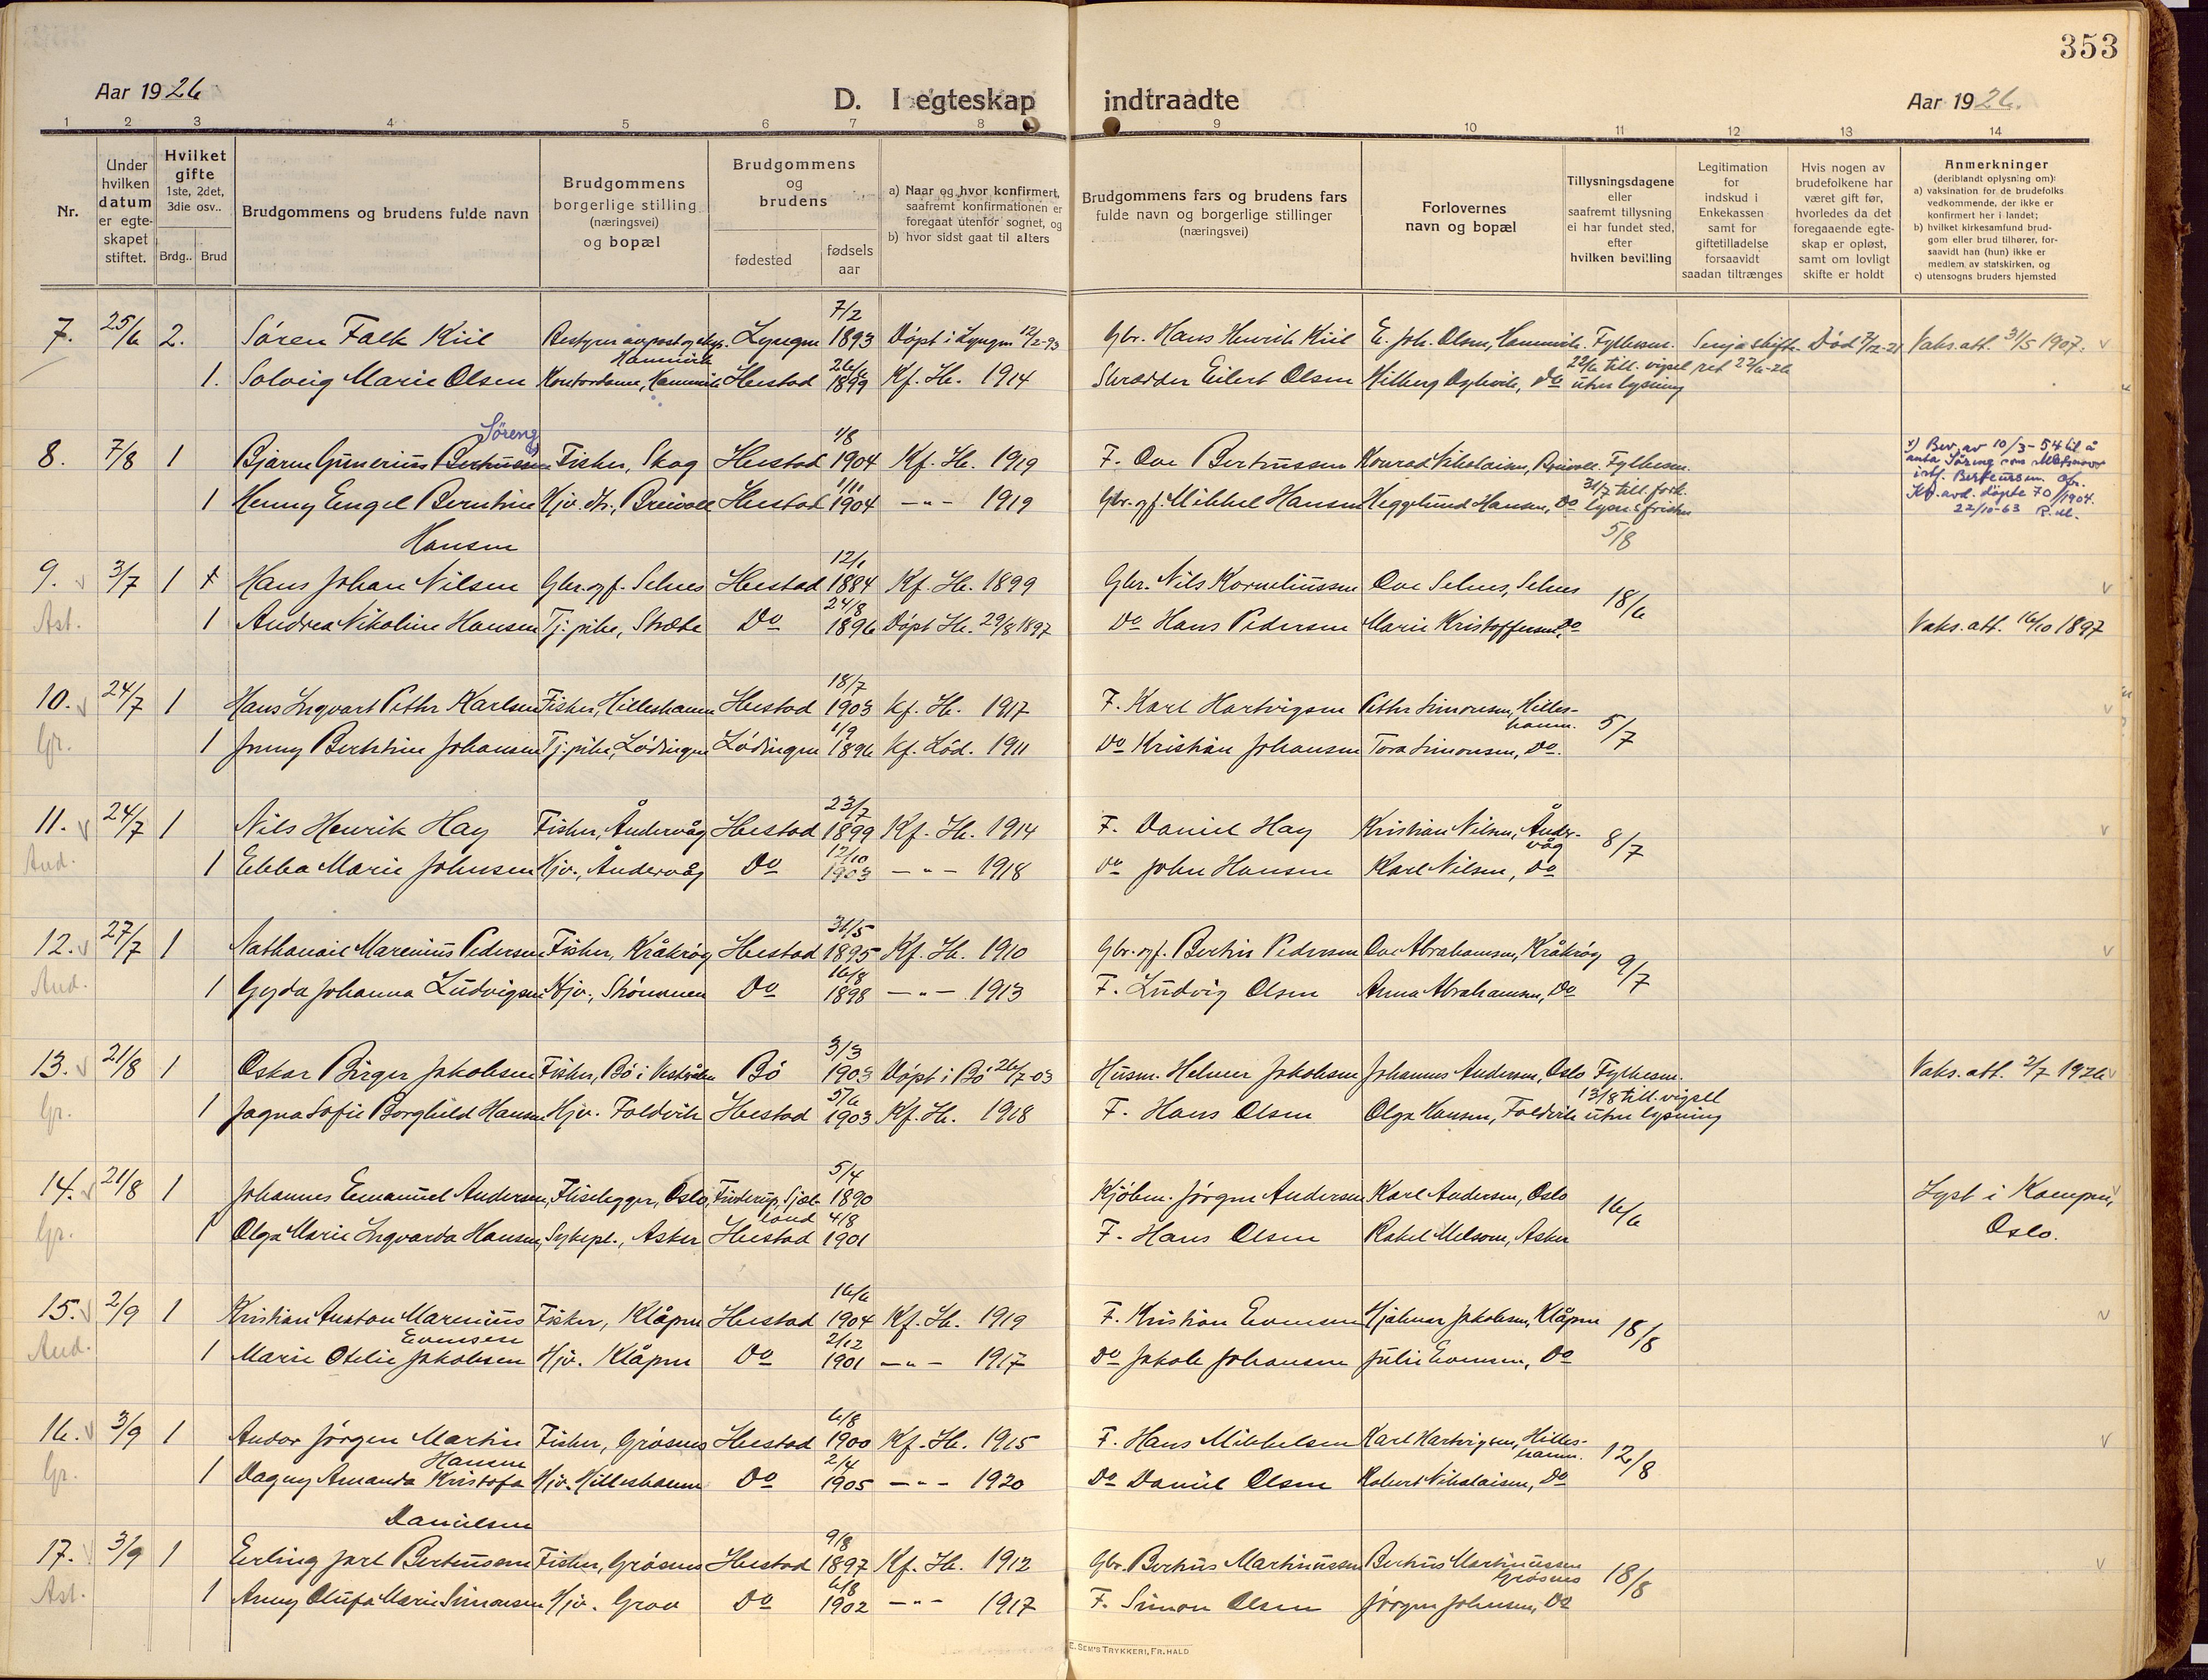 353
Aar 1926
D. I egteskap indtraadte
Aar 1926.
1 2 3 4 5 6 7 8 9 10 11 12 13 14
Nr.
Under hvilken datum er egteskapet stiftet.
Hvilket gifte 1ste, 2det, 3die osv..
Brdg.. Brud
Brudgommens og brudens fulde navn
Brudgommens borgerlige stilling (næringsvei) og bopæl
Brudgommens og brudens
fødested
fødsels aar
a) Naar og hvor konfirmert, saafremt konfirmationen er foregaat utenfor sognet, og
b) hvor sidst gaat til alters
Brudgommens fars og brudens fars fulde navn og borgerlige stillinger (næringsvei)
Forlovernes navn og bopæl
Tillysningsdagene eller saafremt tillysning ei har fundet sted, efter hvilken bevilling
Legitimation for indskud i Enkekassen samt for giftetilladelse forsaavidt saadan tiltrænges
Hvis nogen av brudefolkene har været gift før, hvorledes da det foregaaende egteskap er opløst, samt om lovligt skifte er holdt
Anmerkninger (deriblandt oplysning om):
a) vaksination for de brudefolks vedkommende, der ikke er konfirmert her i landet;
b) hvilket kirkesamfund brudgom eller brud tilhører, forsaavidt han (hun) ikke er medlem av statskirken, og
c) utensogns bruders hjemsted
7. 25/6 2. Søren Falk Kiil Lyngen 7/2 1893 Døpt i Lyngen 12/2-93 Gbr. Hans Henrik Kiil E. Joh. Olsen, Hamnvik. Fylkesm. Senja skifte- Død 7/12-21 Vaks. att. 31/5 1907.
1. Solveig Marie Olsen Kontordame, Hamnvik Ibestad 26/6 1899 Kf. Ib. 1914 Skrædder Eilert Olsen Do 22/6 till. vigsel uten lysning ret 22/6-26
8. 7/8 1 Bjarne Gunerius Bertussen Søreng Fisker, Skog Ibestad 1/8 1904 Kf. Ib. 1919 F. Ove Bertussen Konrad Nikolaisen, Breivoll. Fylkesm.
1 Henny Engel Berntine Hansen Hjv. dtr., Breivoll Ibestad 1/10 1904 -"- 1919 Gbr. og f. Mikkel Hansen Heggelund Hansen, Do 31/7 till. fork. lysn.s fristen 5/8
x) Bev. av 10/3-54 til å anta Søreng som slektsnavn istf. Berteussen. Jfr. Kb. avd. døpte 70/1904. 22/10-63 R.M.
9. 3/7 1 Hans Johan Nilsen Gbr. og f. Selnes Ibestad 12/1 1884 Kf. Ib. 1899 Gbr. Nils Korneliussen Ove Selnes, Selnes 18/6
Ast. 1 Andrea Nikoline Hansen Tj. pike, Stræte Do 24/8 1896 Døpt Ib. 29/8 1897 Do Hans Pedersen Marie Kristoffersen, Do Vaks. att. 16/10 1897
10. 24/7 1 Hans Ingvart Pether Karlsen Fisker, Hilleshamn Ibestad 18/7 1903 Kf. Ib. 1917 F. Karl Hartvigsen Pether Simonsen, Hilleshamn. 5/7
Gr. 1 Jenny Berntine Johansen Tj. pike, Lødingen Lødingen 1/9 1896 Kf. Lød. 1911 Do Kristian Johansen Tora Simonsen, Do.
11. 24/7 1 Nils Henrik Hay Fisker, Åndervåg Ibestad 23/7 1899 Kf. Ib. 1914 F. Daniel Hay Kristian Nilsen, Åndervåg 8/7
And. 1 Ebba Marie Johnsen Hjv., Åndervåg Do 12/10 1903 -"- 1918 Do John Hansen Karl Nilsen, Do
12. 27/7 1 Nathanael Marenius Pedersen Fisker, Kråkrøg Ibestad 31/5 1895 Kf. Ib. 1910 Gbr. og f. Bertin Pedersen Ove Abrahamsen, Kråkrøg 9/7
And. 1 Gyda Johanna Ludvigsen Hjv., Skønnenen Do 16/8 1898 -"- 1913 F. Ludvig Olsen Anna Abrahamsen, Do
13. 21/8 1 Oskar Birger Jakobsen Fisker, Bø i Vesterålen Bø 3/3 1903 Døpt i Bø 26/7-03 Husm. Helmer Jakobsen Johannes Andersen, Oslo Fylkesm. Vaks. att. 2/7 1926
Gr. 1 Jagna Sofie Borghild Hansen Hjv. Foldvik Ibestad 5/6 1903 Kf. Ib. 1918 F. Hans Olsen Olga Hansen, Foldvik 13/8 till. vigsel uten lysning
14. 21/8 1 Johannes Emanuel Andersen, Fliselegger, Oslo, Sjælland 5/4 1890 Kjøbm. Jørgen Andersen Karl Andersen, Oslo 16/6 Lyst i Kampen, Oslo.
Gr. 1 Olga Marie Ingvarda Hansen, Sykepl., Asker Ibestad 4/8 1901 F. Hans Olsen Rakel Melsom, Asker
15. 2/9 1 Kristian Anton Marenius Evensen Fisker, Klåpen Ibestad 16/6 1904 Kf. Ib. 1919 F. Kristian Evensen Hjalmar Jakobsen, Klåpen 18/8
And. 1 Marie Otelie Jakobsen Hjv. Klåpen Do 2/12 1901 -"- 1917 Do Jakob Johansen Julie Evensen, Do
16. 3/9 1 Andor Jørgen Martin Hansen Fisker, Grøsnes Ibestad 6/8 1900 Kf. Ib. 1915 F. Hans Mikkelsen Karl Hartvigsen, Hilleshamn. 12/8
Gr. 1 Dagny Amanda Kristofa Danielsen Hjv. Hilleshamn Do 2/4 1905 -"- 1920 Do Daniel Olsen Robert Nikolaisen, Do
17. 3/9 1 Erling Jarl Berteussen Fisker, Grøsnes Ibestad 9/8 1897 Kf. Ib. 1912 Gbr. Berteus Martinussen Berteus Martinussen Grøsnes 18/8
Ast. 1 Anny Olufa Marie Simonsen Hjv. Grov Do 6/8 1902 -"- 1917 F. Simon Olsen Jørgen Johnsen, Do
E. SEM'S TRYKKERI, FR.HALD